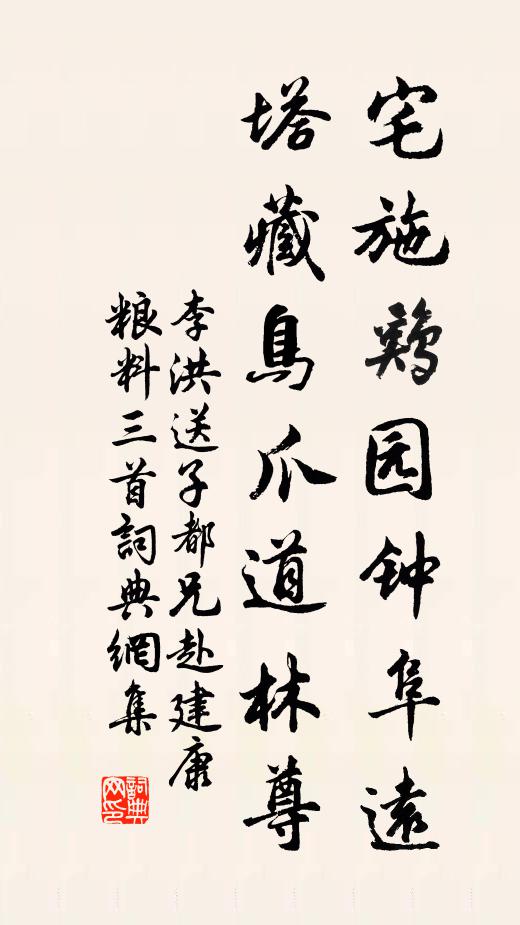 宅施鷄园钟阜遠
塔藏鳥爪道林尊
李洪送子都兄赴建康
粮料三首詞典網集
詞典
网印